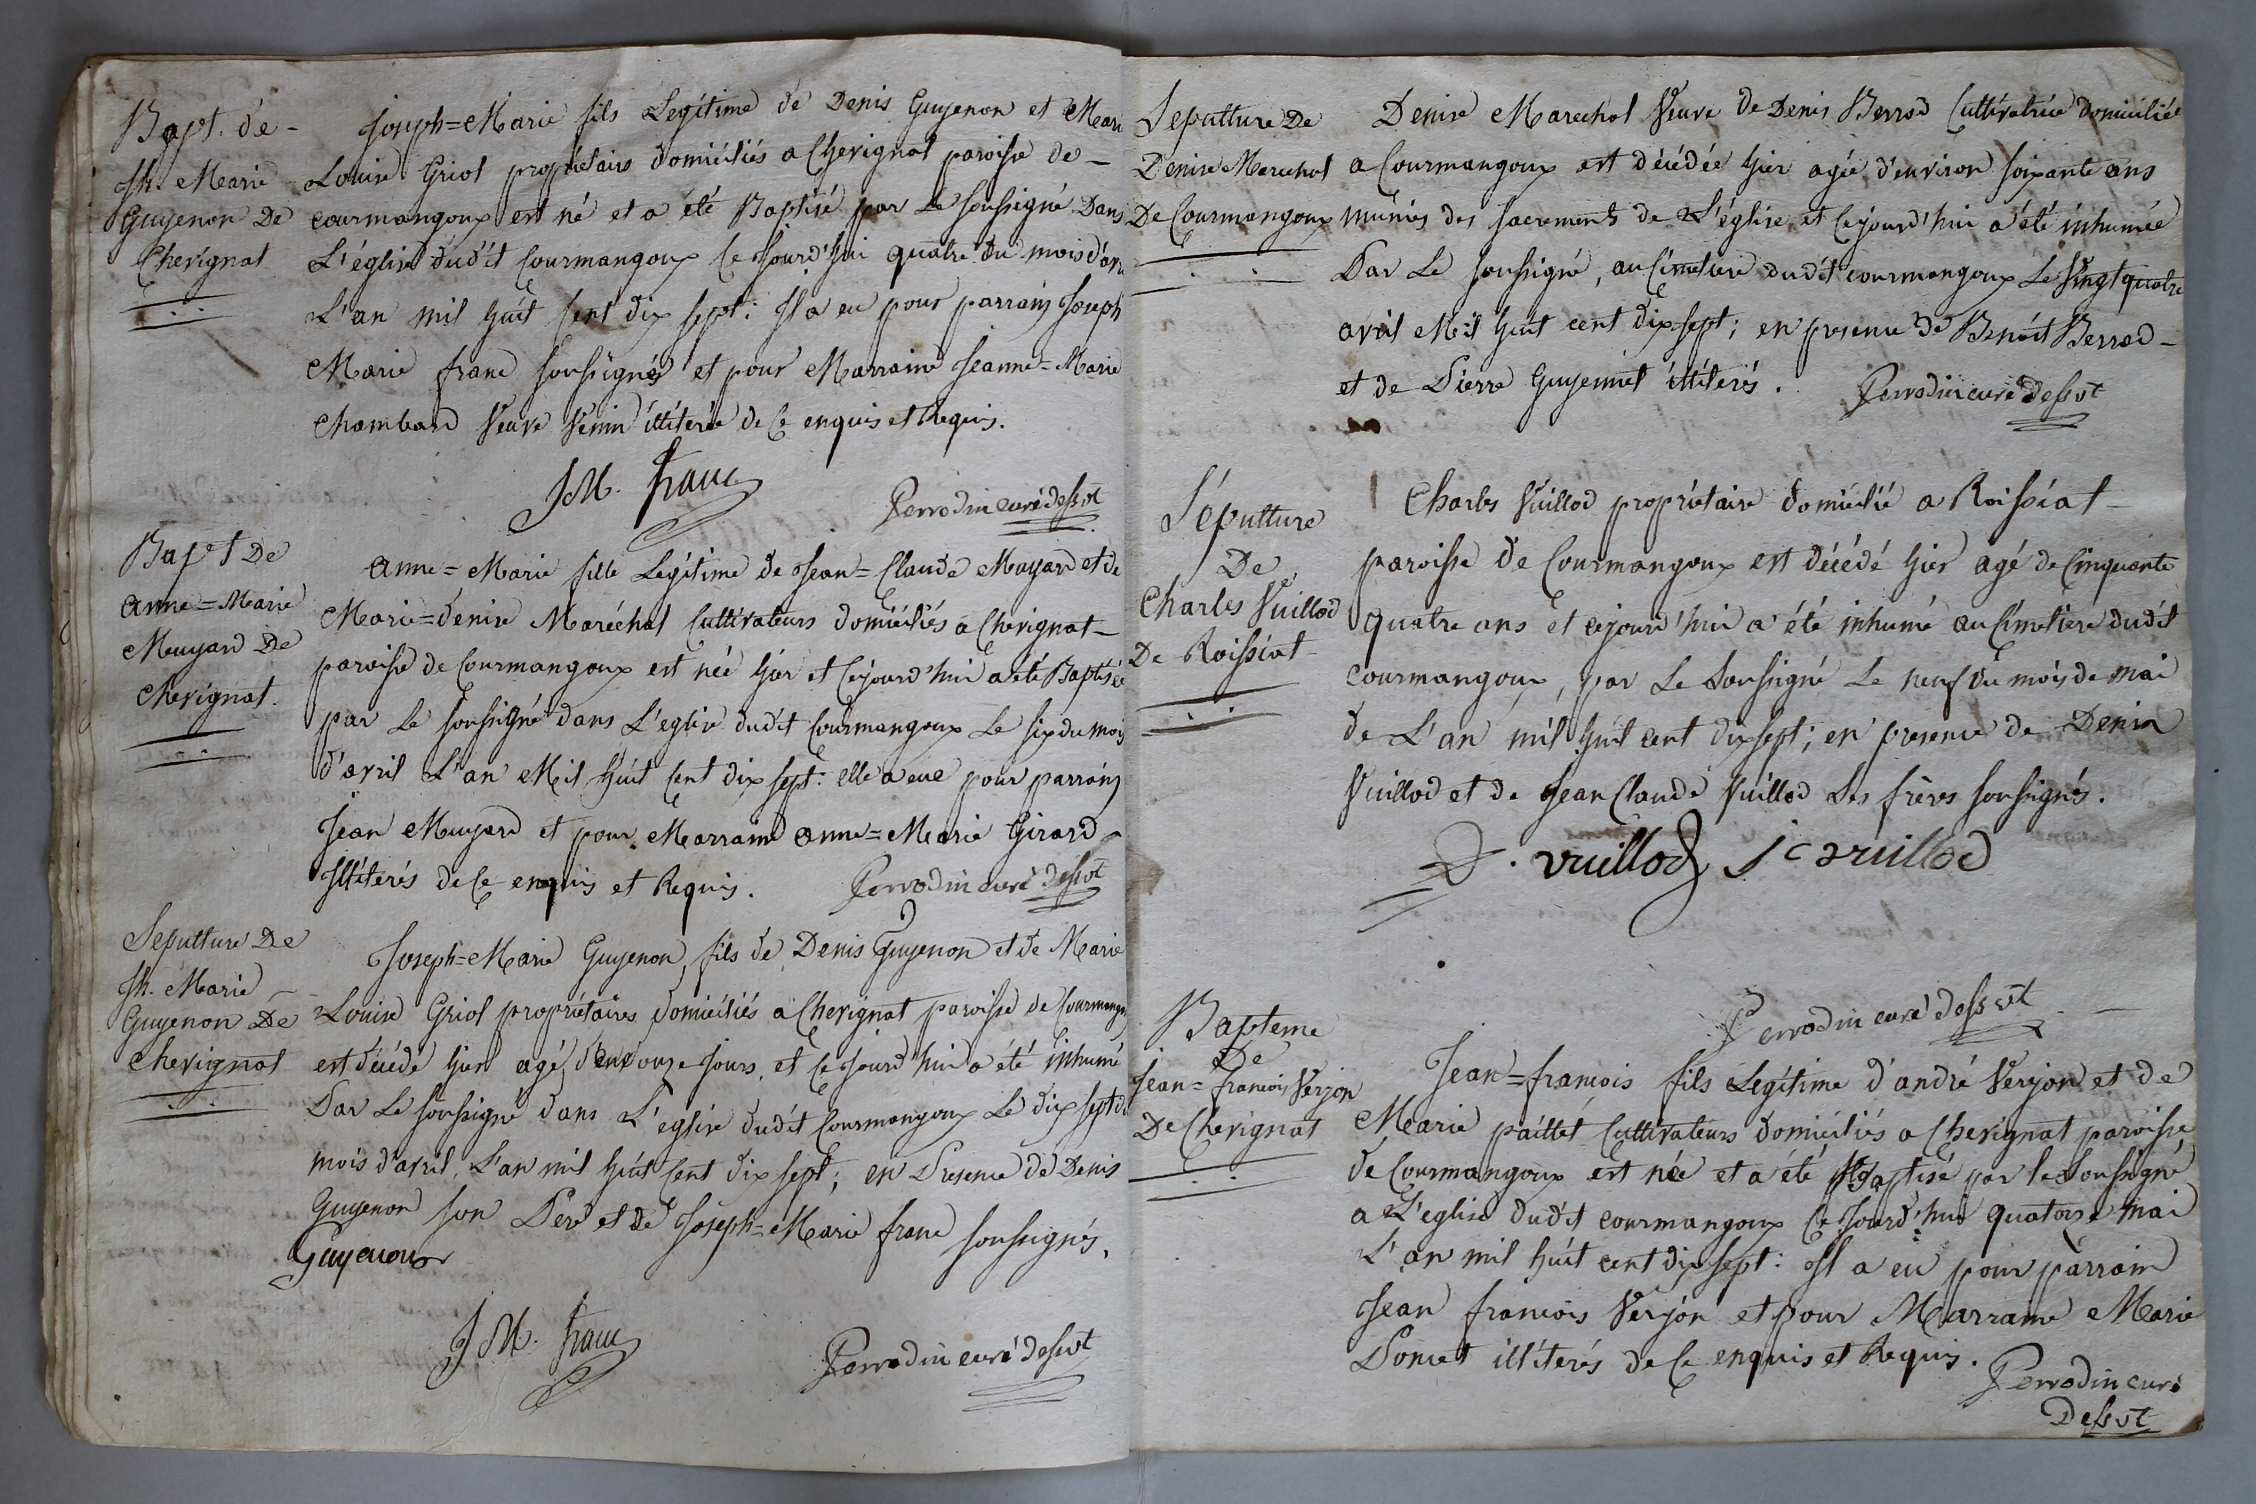 Bapt. de -
Jh. Marie
Guyenon De
Chevignat
Joseph=Marie fils Legitime de Denis Guyenon et Mari
Louise Griot proprietairs domiciliés a Chevignat paroisse de -
courmangoux est né et a été Baptisé par Le soussigné Dans
L'église dudit Courmangoux Ce Jourd'hui quatre du mois d'avri
L'an mil huit Cent dix sept: Il a eu pour parrain Joseph
Marie franc soussigné et pour Marraine Jeanne=Marie
Chambard Veuve Venin illiterée de Ce enquis et Requis.
JM. franc
Perrodin curé dessvt
Bapt De
Anne=Marie
Mouyard De
Chevignat.
Anne=Marie fille Legitime de Jean=Claude Mouyard et de
Marie=denise Maréchal Cultivateurs domiciliés a Chevignat -
paroisse de Courmangoux est née hier et Cejourd'hui a été Baptisée
par Le soussigné dans L'eglise dudit Courmangoux Le six du mois
d'avril L'an Mil huit Cent dix sept: elle a eue pour parrain
Jean Mouyard et pour Marraine anne=Marie Girard
Illiterés de Ce enquis et Requis.
Perrodin curé dessvt
Sepulture De
Jh. Marie -
Guyenon De
Chevignat
Joseph=Marie Guyenon, fils de Denis Guyenon et de Marie
Louise Griot propriétaires domiciliés a Chevignat paroisse de Courmango
est décédé hier agé d'env onze Jours, et Ce Jourd'hui a été inhumé
Par Le soussigné dans L'eglise dudit Courmangoux Le dix sept du
mois d'avril, L'an mil huit Cent dix sept; en Presence de Denis
Guyenon son Pere et de Joseph=Marie franc soussignés,
Guyenon
JM. franc
Perrodin curé dessvt
Sepulture De
Denise Marechal
De Courmangoux
Denise Marechal Veuve de Denis Berrod Cultivatrice domiciliée
a Courmangoux est décédée hier agée d'environ soixante ans
munies des sacrements de L'église et Cejourd'hui a été inhumée
Par Le soussigné, au Cimetiere dudit courmangoux Le vingt quatre
avril Mil huit cent dix-sept; en presence de Benoit Berrod -
et de Pierre Guyennet illiterés.
Perrodin curé dessvt
Sépulture
De
Charles Vuillod
De Roissiat -
Charles Vuillod propriétaire domicilié a Roissiat -
paroisse de Courmangoux est décédé hier agé de Cinquante
quatre ans et cejourd'hui a été inhumé au Cimetière dudit
courmangoux, par Le Soussigné Le neuf du mois de mai
de L'an mil huit cent dix sept; en presence de Denis
Vuillod et de Jean Claude Vuillod Ses frères soussignés.
D. vuillod Jc vuillod
Perrodin curé dessvt
Bapteme
De
Jean=francois Verjon
De Chevignat
Jean=francois fils Legitime d'andré Verjon et de
Marie paillet Cultivateurs domiciliés a Chevignat paroisse
de Courmangoux est née et a été Baptisé par le Soussigné
a L'eglise dudit courmangoux Ce Jourd'hui quatorze mai
L'an mil huit cent dix sept: Il a eu pour parrain
Jean francois Verjon et pour Marraine Marie
Poncet illiterés de Ce enquis et Requis.
Perrodin curé
Dessvt